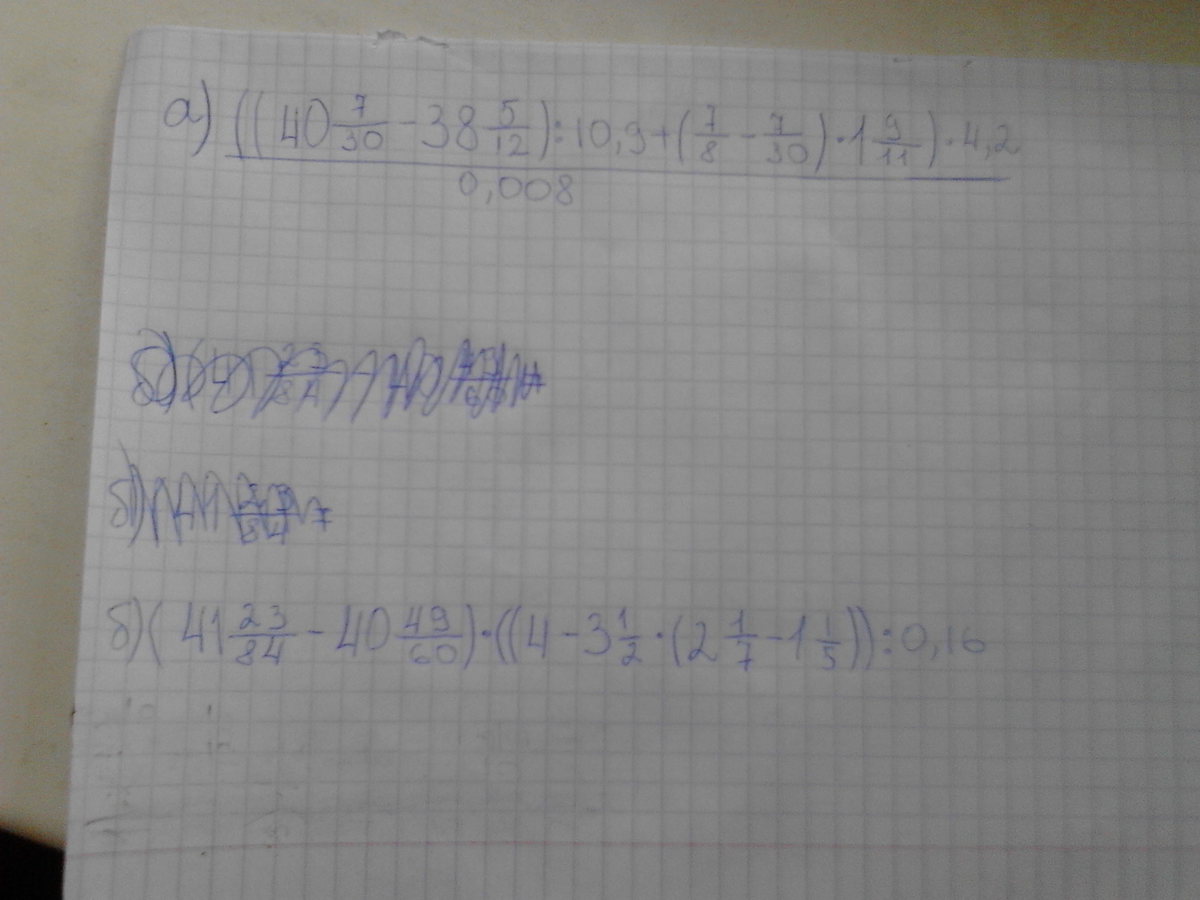 а) ((40 7/30 - 38 5/12) : 10,9 + (7/8 - 7/30) · 1 9/11) · 4,2
0,008
б) (41 23/84 - 40 49/60) · ((4 - 3 1/2 · (2 1/7 - 1 1/5)) : 0,16